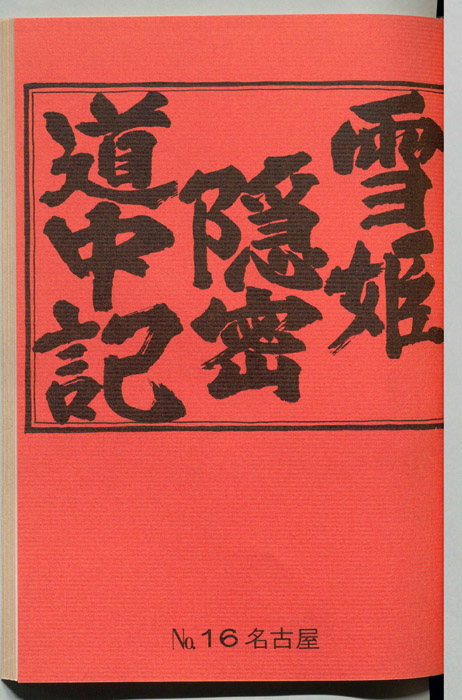 雪姫
隠密
道中記
No.16 名古屋